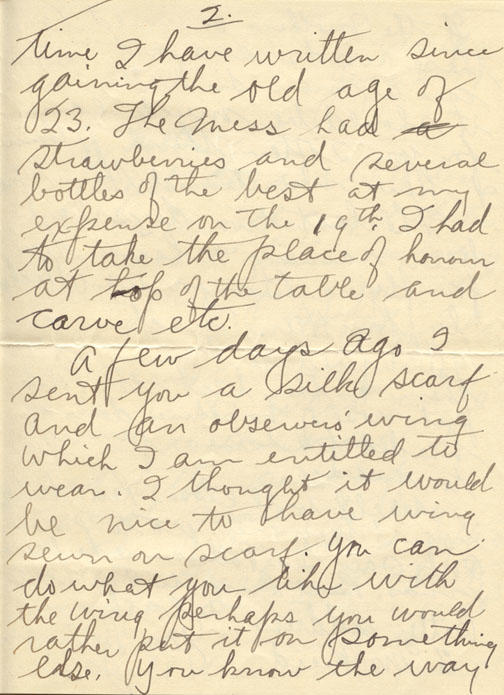 2.
time I have written since
gaining the old age of
23. The Mess had a
strawberries and several
bottles of the best at my
expense on the 19th. I had
to take the place of honour
at top of the table and
carve etc.
A few days ago I
sent you a silk scarf
and an observers' wing
which I am entitled to
wear. I thought it would
be nice to have wing
sewn on scarf. You can
do what you like with
the wing perhaps you would
rather put it on something
else. You know the way